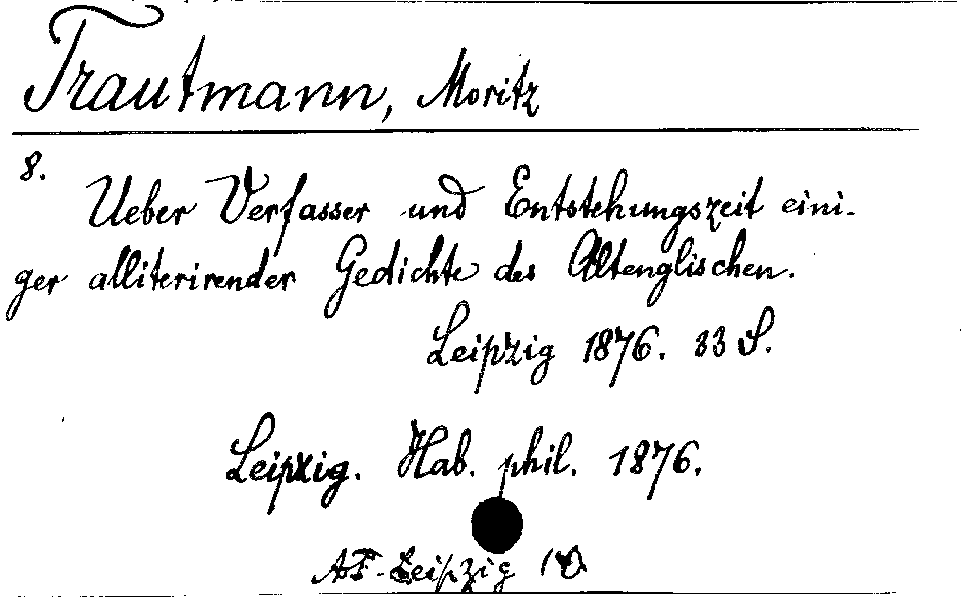 Trautmann, Moritz
8.
Ueber Verfasser und Entstehungszeit eini-
ger alliterirender Gedichte des Altenglischen.
Leipzig 1876. 33 S.
Leipzig. Hab. phil. 1876.
Leipzig